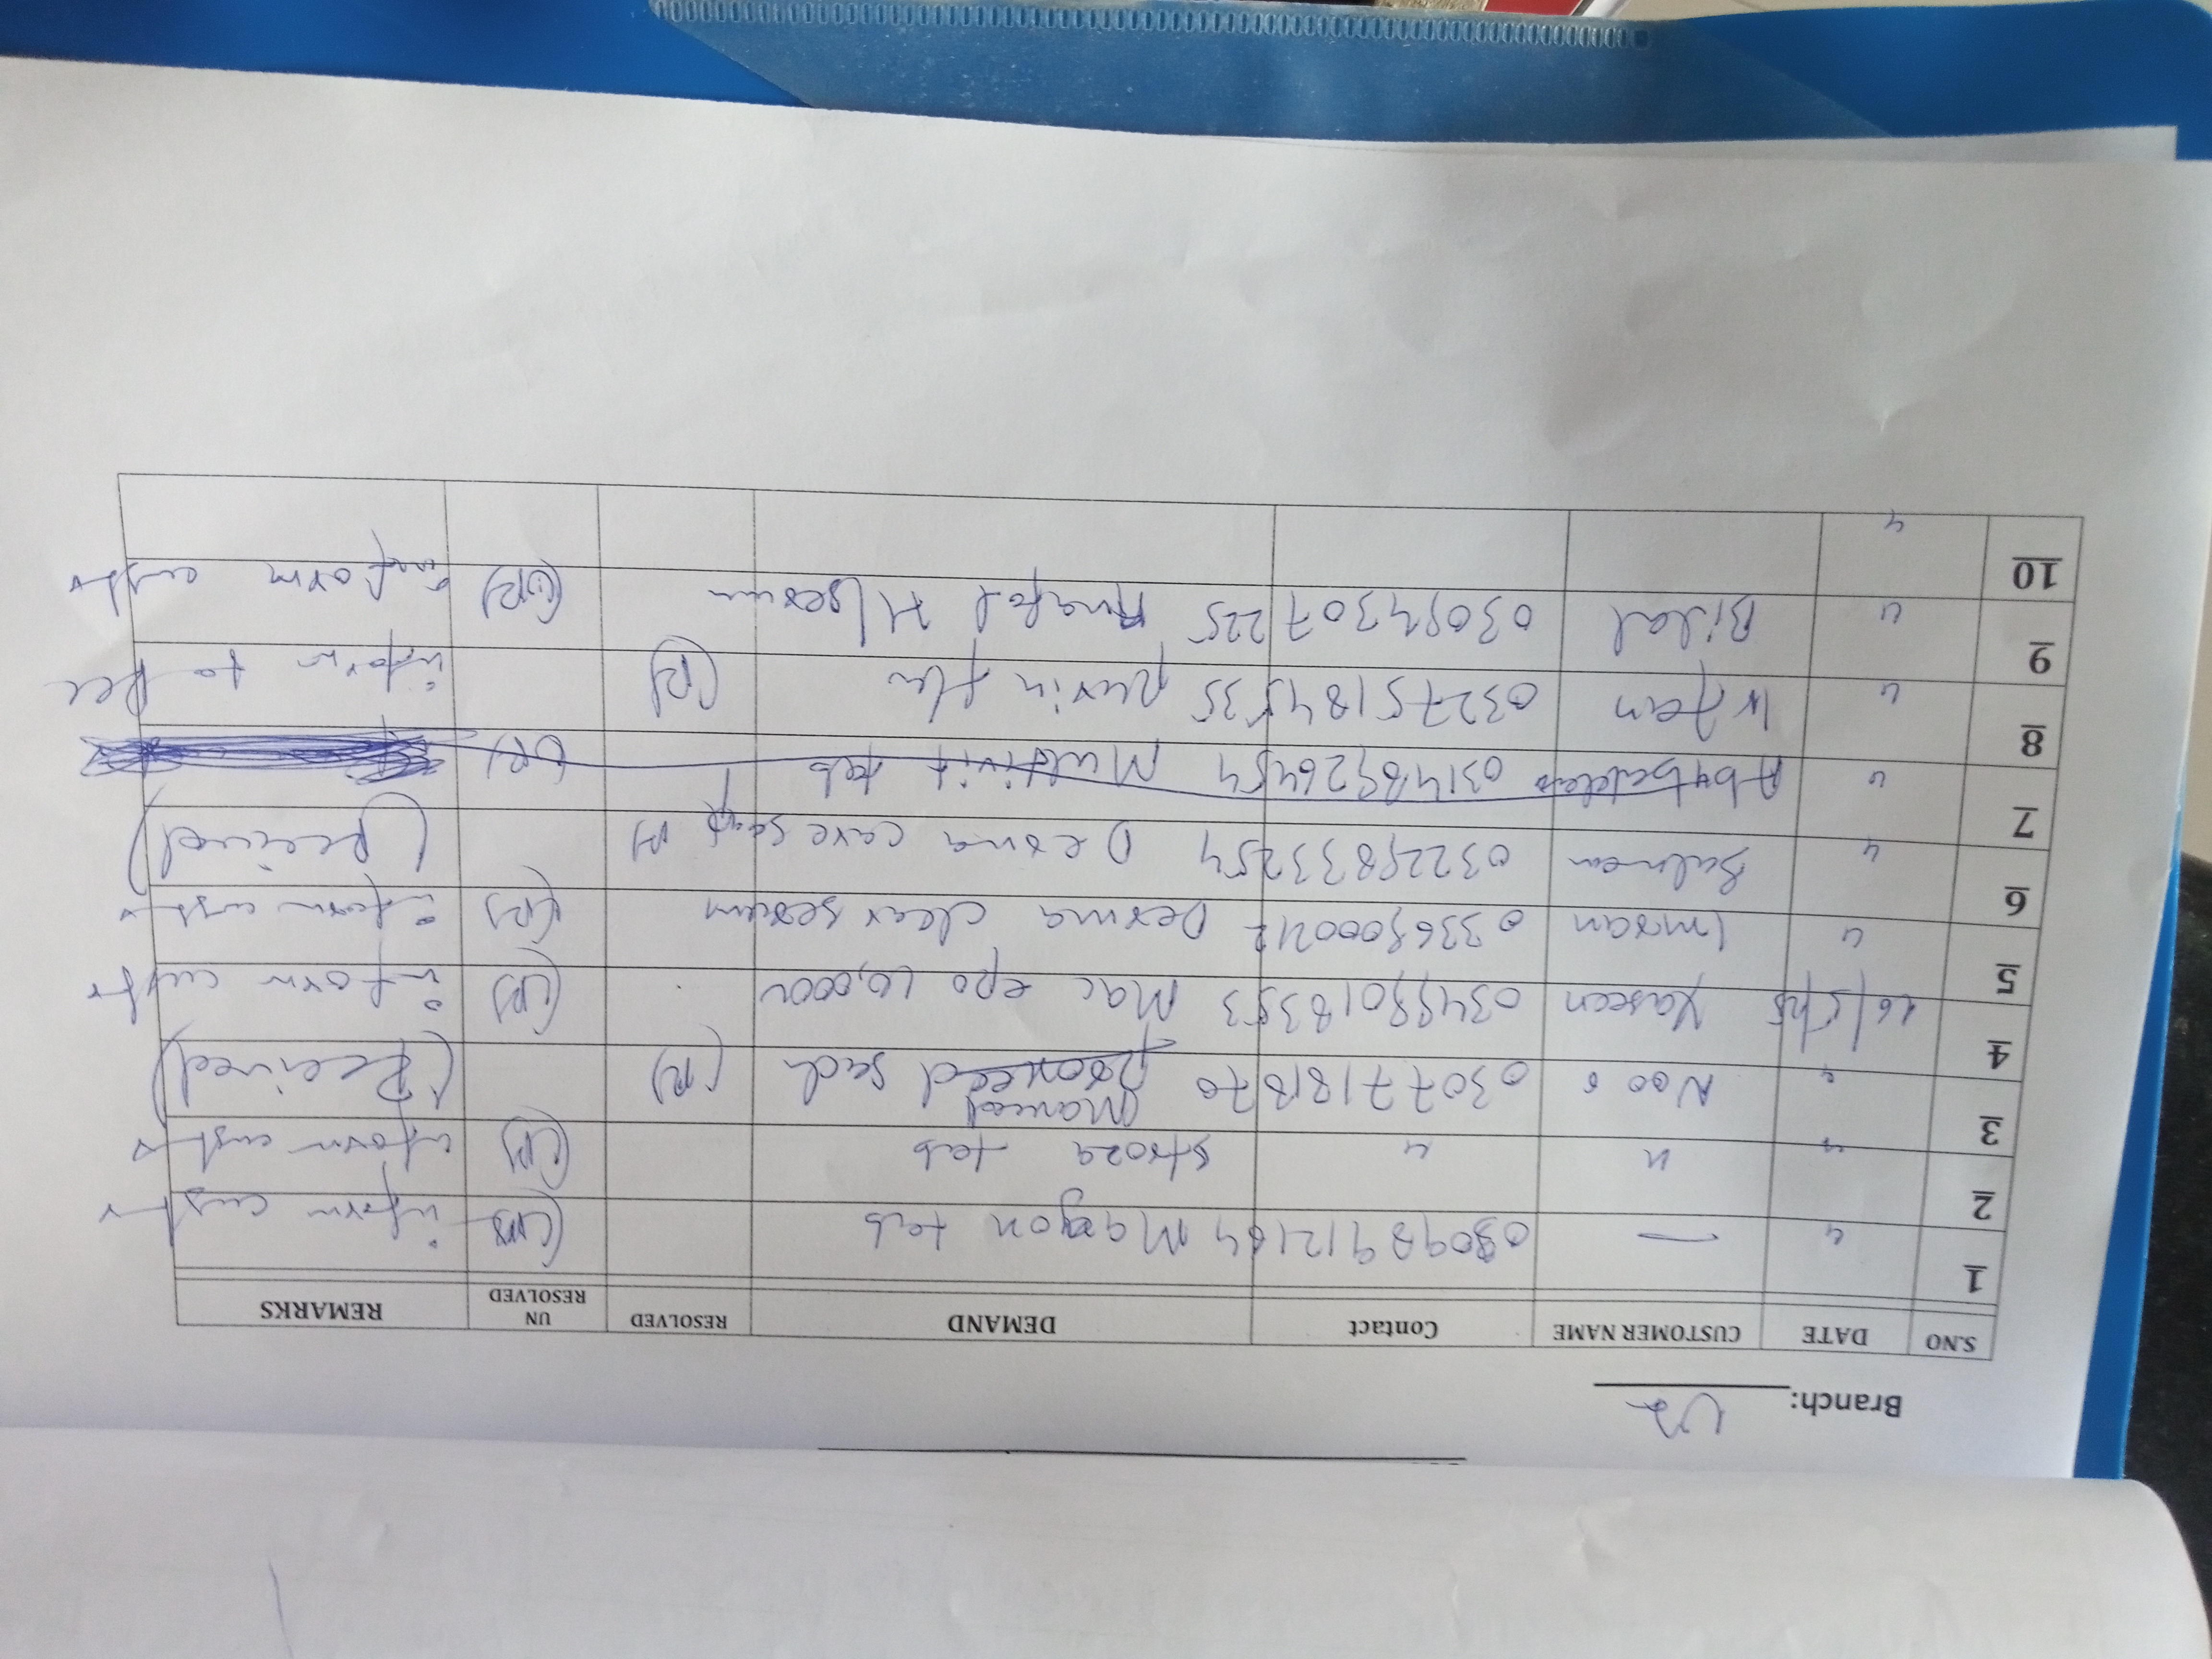 Branch: U2
S.NO DATE CUSTOMER NAME Contact DEMAND RESOLVED UN RESOLVED REMARKS
1 " — Maxgon tab (UR) inform cust
2 " " " Stroza tab (UR) inform cust
3 " Noor 03077181870 Manced sach (R) (Received)
4 16/5/25 Yaseen 03498018353 Mac epo 10,000u (UR) inform cust
5 " Imran 03368000212 Derma clear serum (UR) inform cust
6 " Salman 03229833254 Derma care soap (R) (Received)
7 " 03148926454 Multivit tab (UR)
8 " Irfan 03275184535 flu (R) inform to Rec
9 " Bilal 03094307225 H/serum (UR) inform cust
10 "